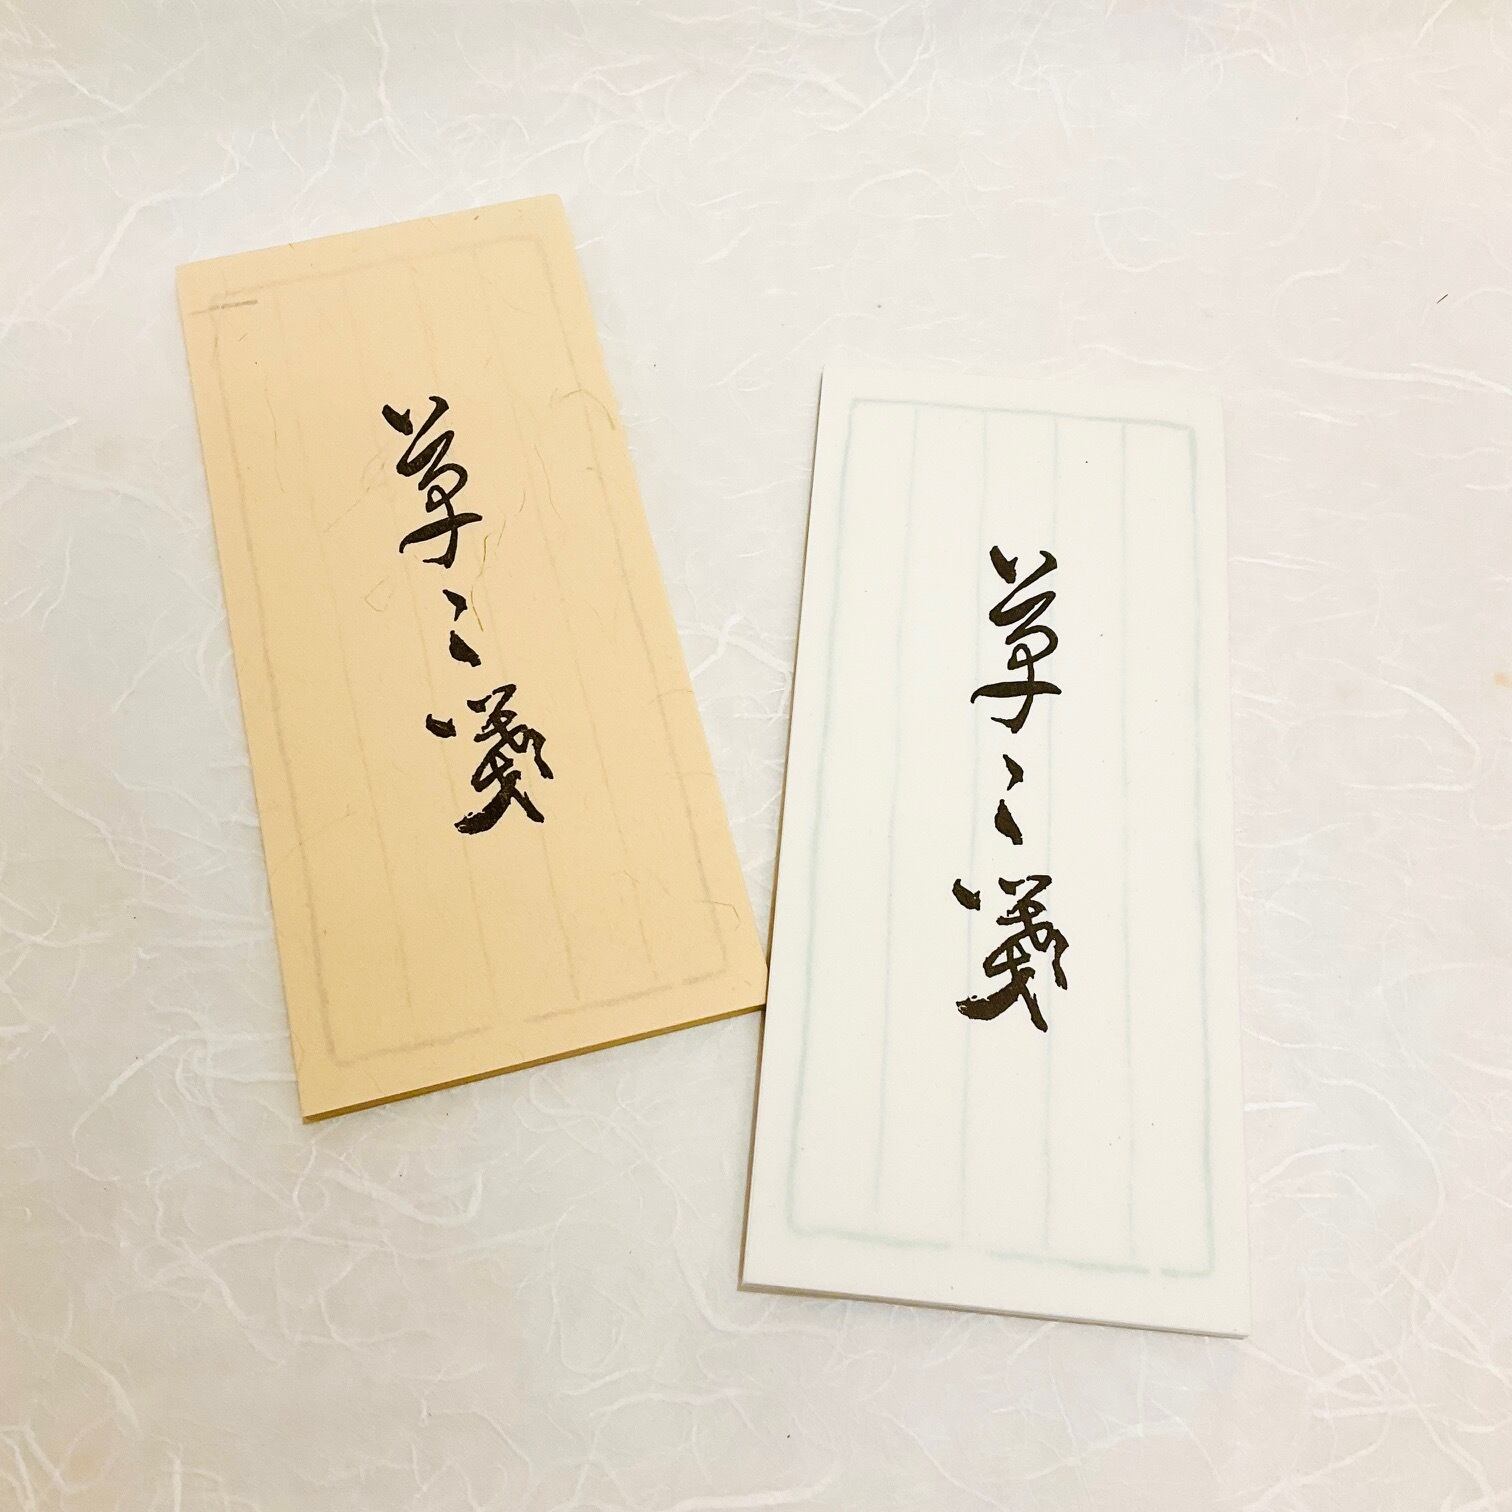 草々箋
草々箋